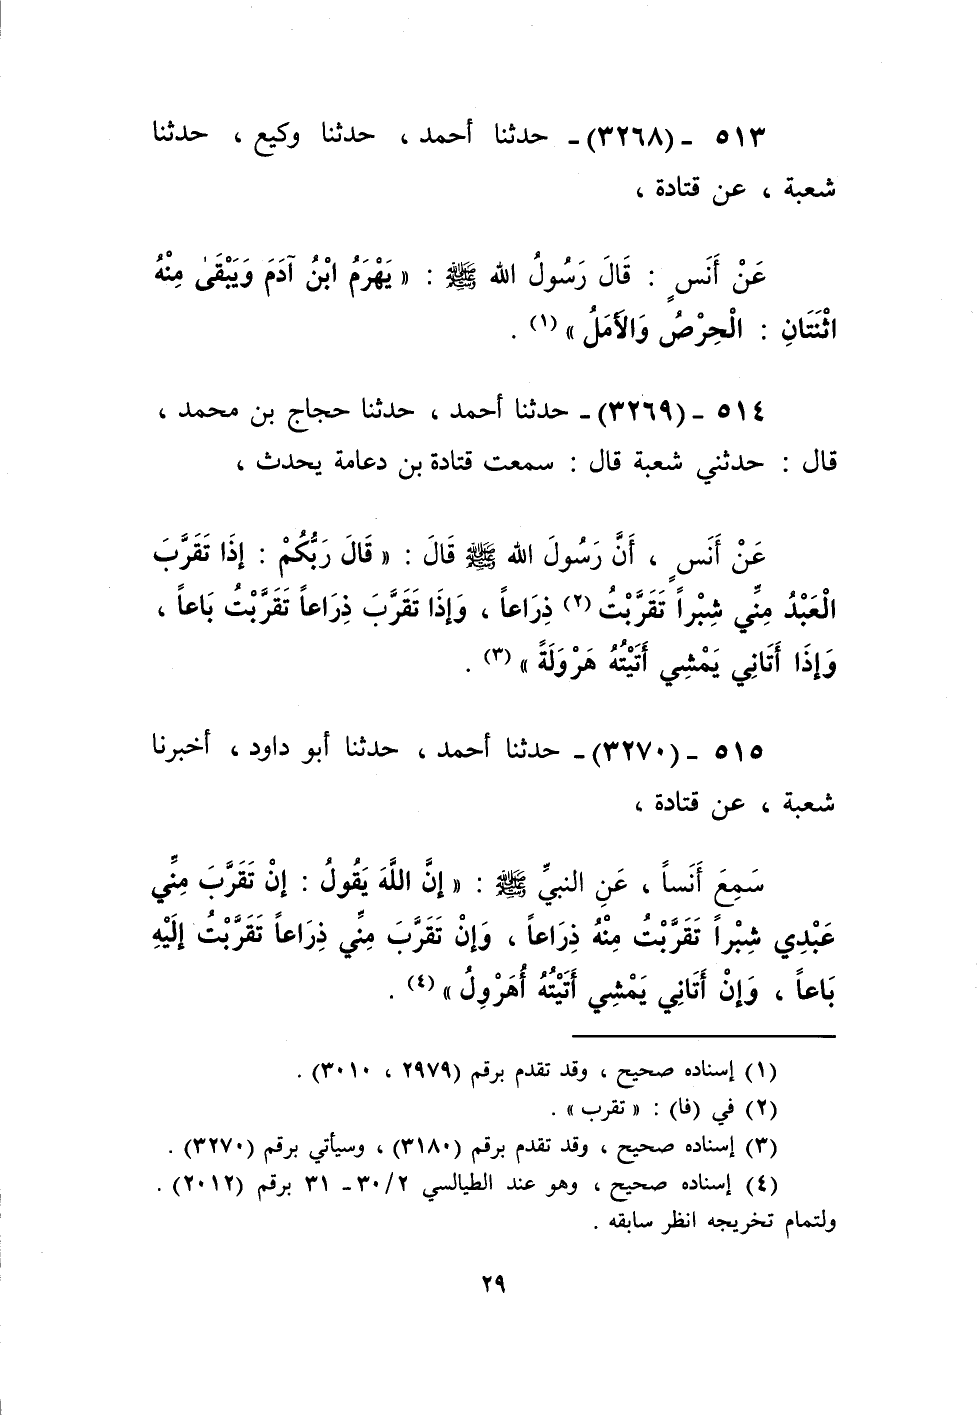 ٥١٣ ـ (٣٢٦٨) ـ حدثنا أحمد ، حدثنا وكيع ، حدثنا
شعبة ، عن قتادة ،
عَنْ أَنَسٍ : قَالَ رَسُولُ الله ﷺ : « يَهْرَمُ ابْنُ آدَمَ وَيَبْقَىٰ مِنْهُ
اثْنَتَانِ : الْحِرْصُ وَالأَمَلُ » (١) .
٥١٤ ـ (٣٢٦٩) ـ حدثنا أحمد ، حدثنا حجاج بن محمد ،
قال : حدثني شعبة قال : سمعت قتادة بن دعامة يحدث ،
عَنْ أَنَسٍ ، أَنَّ رَسُولَ الله ﷺ قَالَ : « قَالَ رَبُّكُمْ : إِذَا تَقَرَّبَ
الْعَبْدُ مِنِّي شِبْراً تَقَرَّبْتُ (٢) ذِرَاعاً ، وَإِذَا تَقَرَّبَ ذِرَاعاً تَقَرَّبْتُ بَاعاً ،
وَإِذَا أَتَانِي يَمْشِي أَتَيْتُهُ هَرْوَلَةً » (٣) .
٥١٥ ـ (٣٢٧٠) ـ حدثنا أحمد ، حدثنا أبو داود ، أخبرنا
شعبة ، عن قتادة ،
سَمِعَ أَنَساً ، عَنِ النبيِّ ﷺ : « إِنَّ اللَّهَ يَقُولُ : إِنْ تَقَرَّبَ مِنِّي
عَبْدِي شِبْراً تَقَرَّبْتُ مِنْهُ ذِرَاعاً ، وَإِنْ تَقَرَّبَ مِنِّي ذِرَاعاً تَقَرَّبْتُ إِلَيْهِ
بَاعاً ، وَإِنْ أَتَانِي يَمْشِي أَتَيْتُهُ أُهَرْوِلُ » (٤) .
(١) إسناده صحيح ، وقد تقدم برقم (٢٩٧٩ ، ٣٠١٠) .
(٢) في (فا) : « تقرب » .
(٣) إسناده صحيح ، وقد تقدم برقم (٣١٨٠) ، وسيأتي برقم (٣٢٧٠) .
(٤) إسناده صحيح ، وهو عند الطيالسي ٢/ ٣٠ ـ ٣١ برقم (٢٠١٢) .
ولتمام تخريجه انظر سابقه .
٢٩